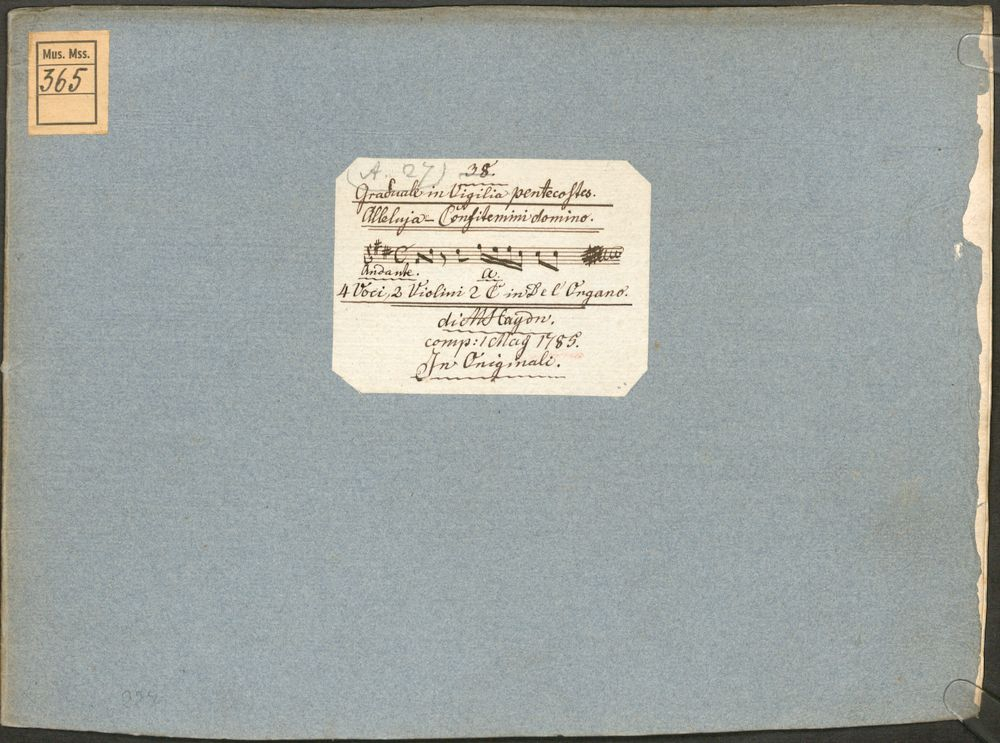 Mus. Mss.
365
(A. 27) 38.
Graduale in Vigilia pentecostes.
Alleluja – Confitemini domino.
Andante. a.
4 Voci, 2 Violini 2 C in D e l'Organo.
di M Haydn.
comp: 1 Mag 1785.
In Originali.